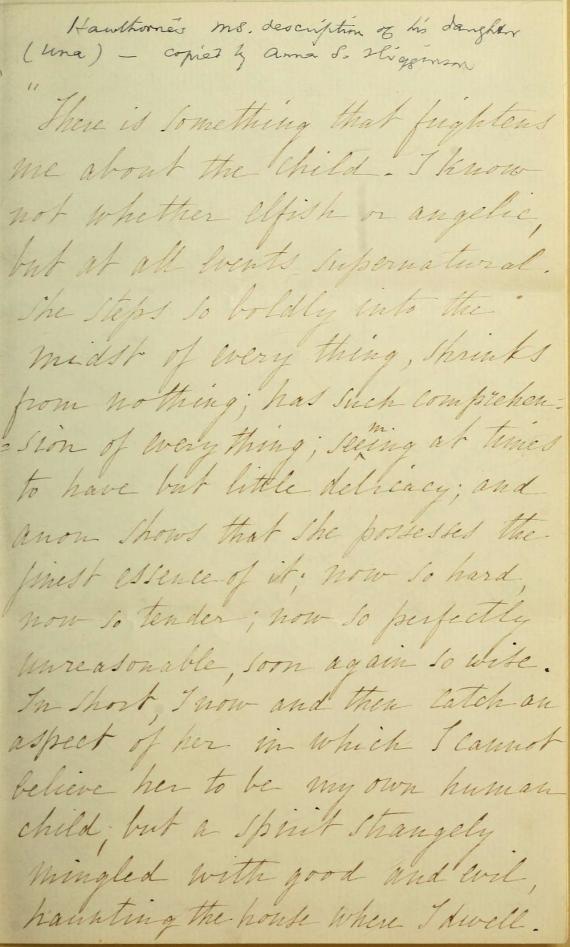 Hawthorne's ms. description of his daughter
(Una) — copied by Anna S. Higginson
"
There is something that frightens
me about the child. I know
not whether elfish or angelic,
but at all events supernatural.
She steps so boldly into the
midst of every thing, shrinks
from nothing; has such comprehen=
=sion of everything; seeming at times
to have but little delicacy; and
anon shows that she possesses the
finest essence of it; now so hard,
now so tender; now so perfectly
unreasonable, soon again so wise.
In short, I now and then catch an
aspect of her in which I cannot
believe her to be my own human
child, but a spirit strangely
mingled with good and evil,
haunting the house where I dwell.